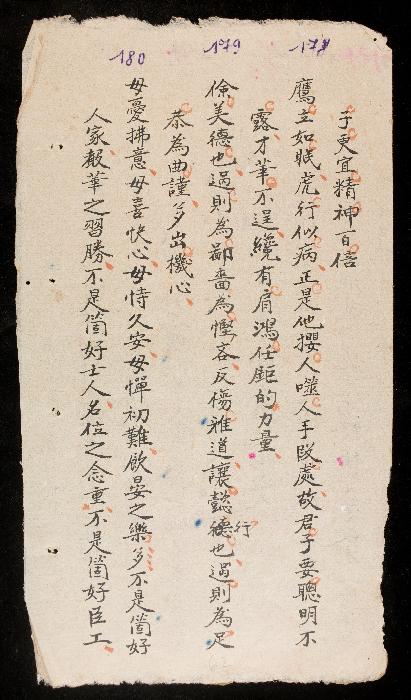 178
子更宜精神百倍
鷹立如眠虎行似病正是他攖人噬人手段處故君子要聰明不
露才華不逞纔有肩鴻任鉅的力量
179
儉美德也過則為鄙嗇為慳吝反傷雅道讓懿德也過則為足
行
恭為曲謹多出機心
180
毋憂拂意毋喜快心毋恃久安毋憚初難飲晏之樂多不是箇好
人家聲華之習勝不是箇好士人名位之念重不是箇好臣工